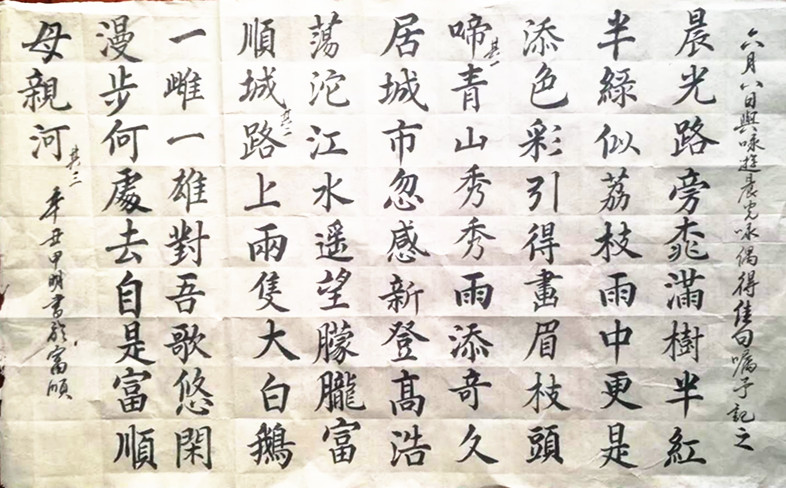 六月八日與咏逛晨光咏偶得佳句嘱予記之
晨光路旁桃滿樹半紅
半綠似荔枝雨中更是
添色彩引得畫眉枝頭
啼其一青山秀秀雨添奇久
居城市忽感新登高浩
蕩沱江水遥望朦朧富
順城其二路上兩隻大白鵝
一雌一雄對吾歌悠閑
漫步何處去自是富順
母親河其三
辛丑甲明書於富順